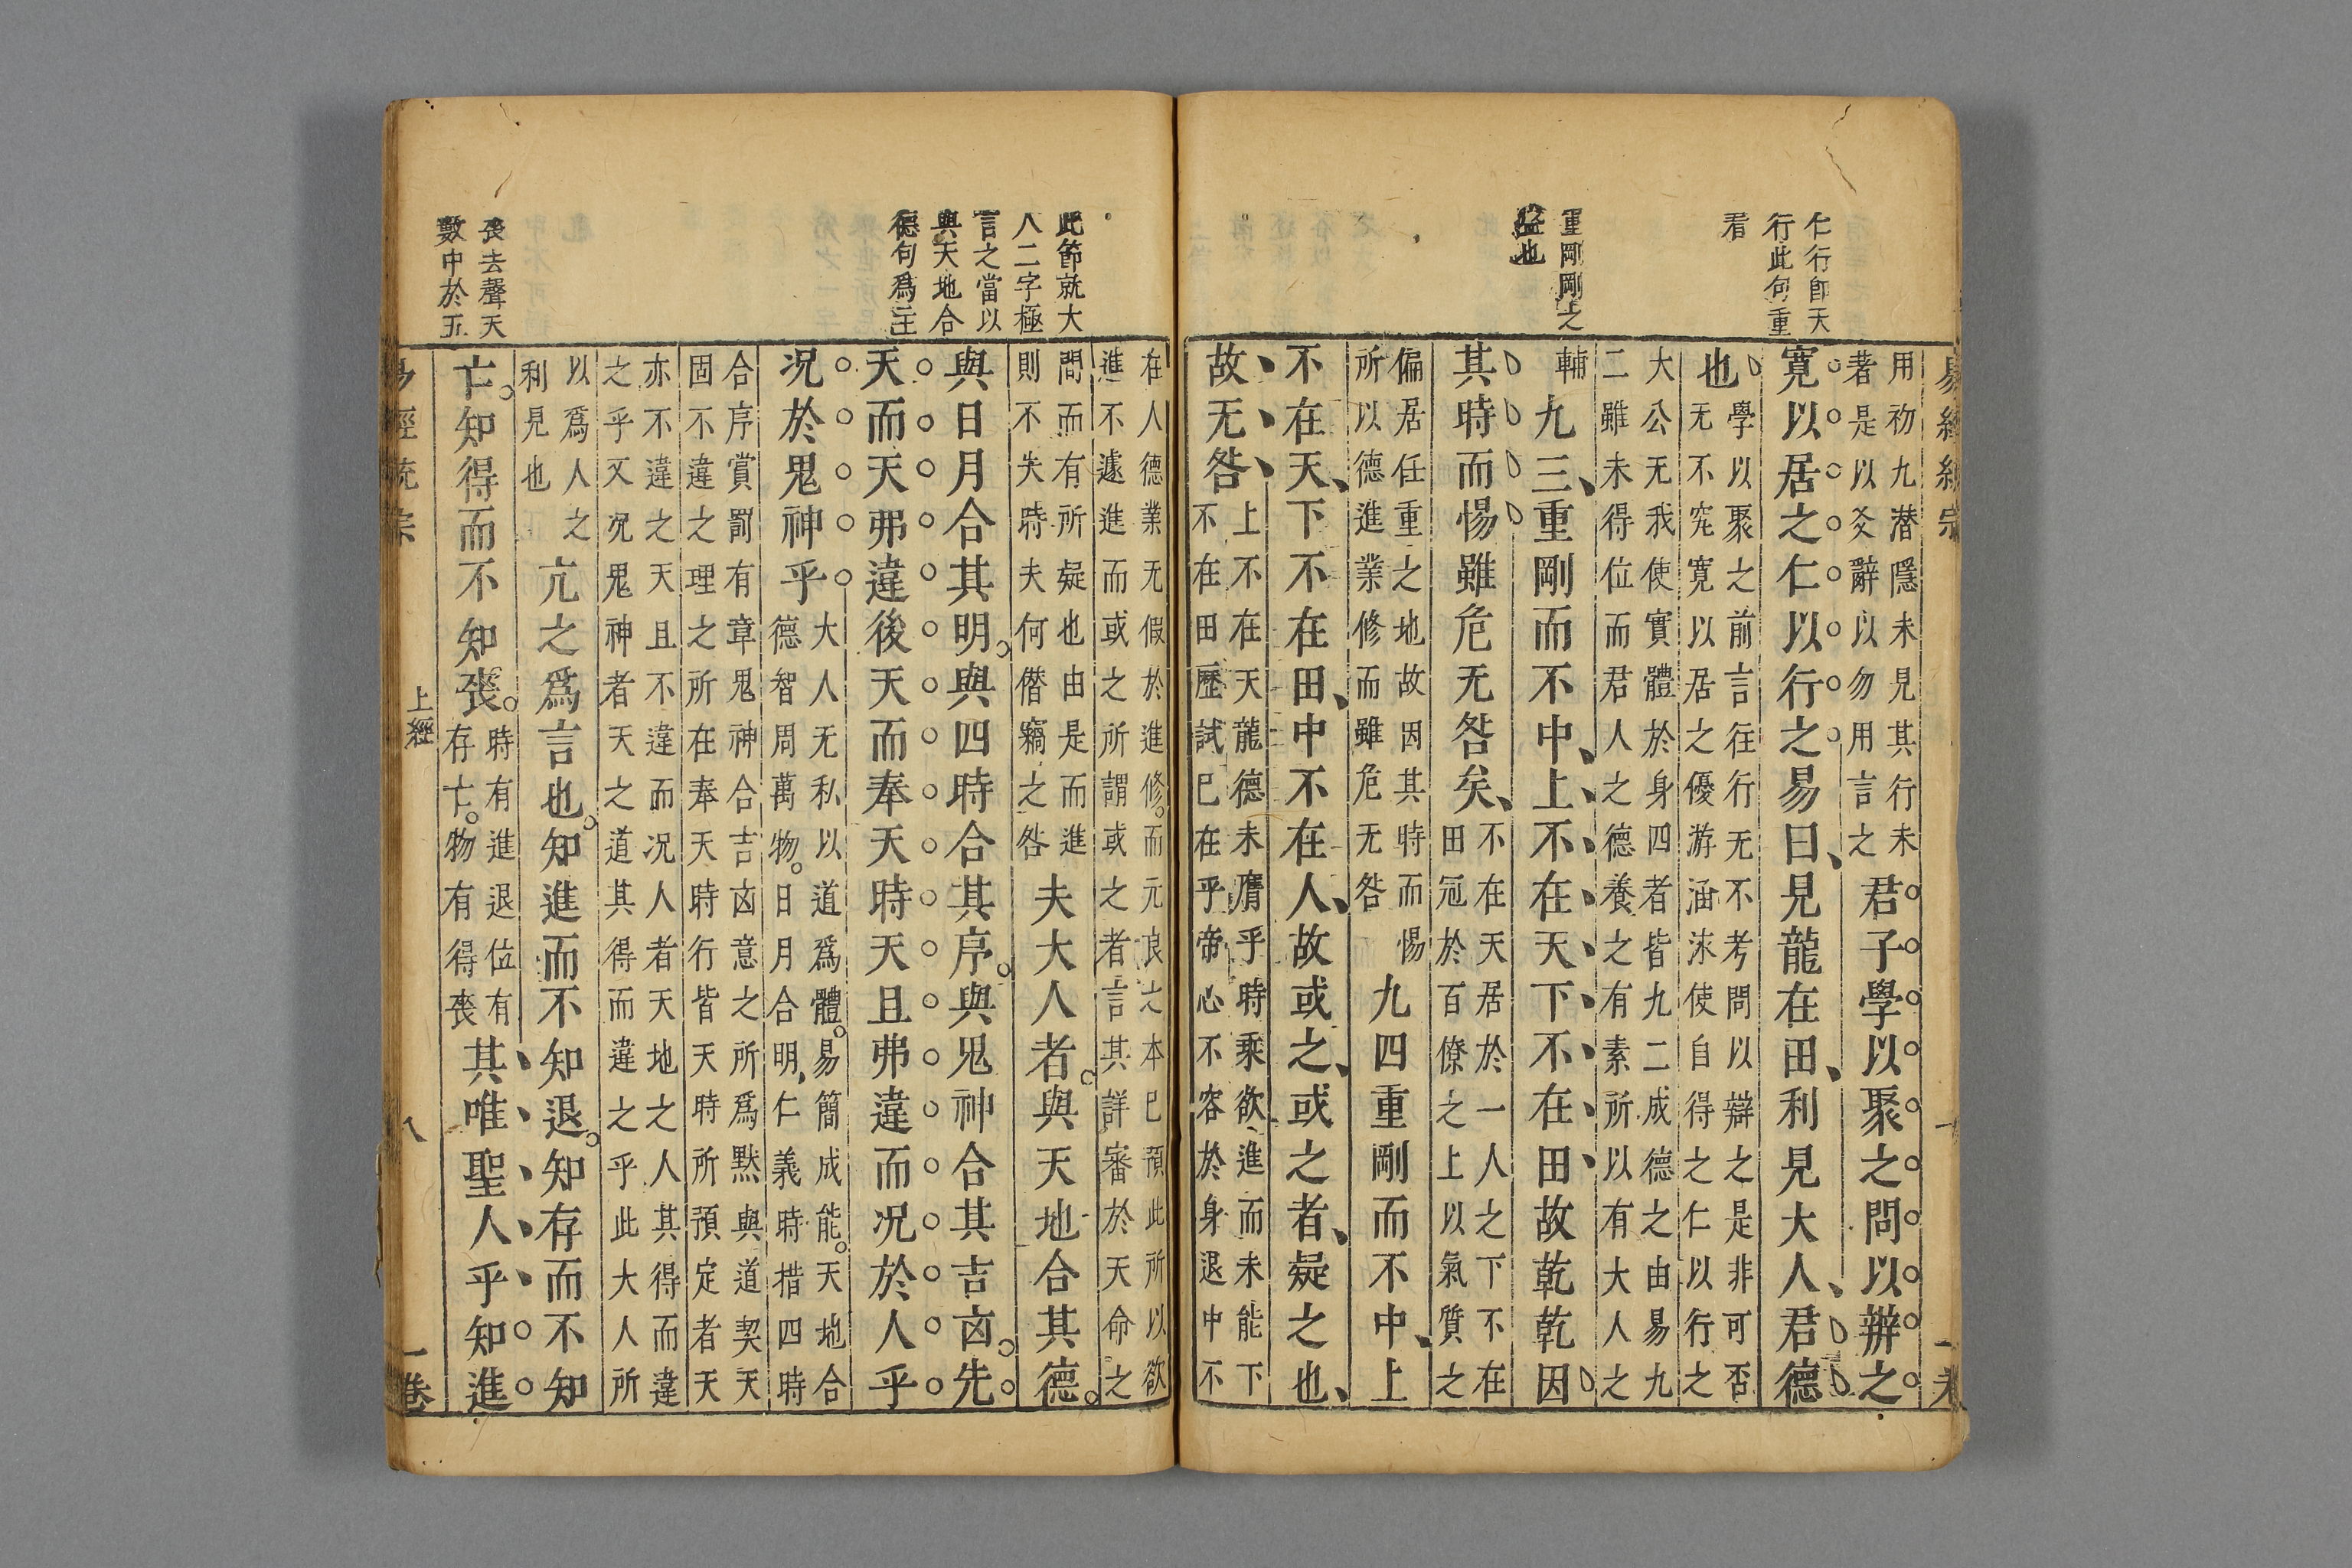 易經統宗
仁行卽天
行此句重
看
重剛剛上之
猛也
用初九潛隱未見其行未
著是以爻辭以勿用言之
君子學以聚之問以辦之
寬以居之仁以行之易曰見龍在田利見大人君德
也
學以聚之前言往行无不考問以辯之是非可否
无不究寬以居之優游涵泳使自得之仁以行之
大公无我使實體於身四者皆九二成德之由易九
二雖未得位而君人之德養之有素所以有大人之
輔
九三重剛而不中上不在天下不在田故乾乾因
其時而惕雖危无咎矣
不在天居於一人之下不在
田冠於百僚之上以氣質之
偏居任重之地故因其時而惕
所以德進業修而雖危无咎
九四重剛而不中上
不在天下不在田中不在人故或之或之者疑之也
故无咎
上不在天龍德未膺乎時乘欲進而未能下
不在田歷試已在乎帝心不容於身退中不
此節就大
人二字極
言之當以
與天地合
德句爲主
喪去聲天
數中於五
在人德業无假於進修而元良之本已預此所以欲
進不遽進而或之所謂或之者言其詳審於天命之
間而有所疑也由是而進
則不失時夫何僭竊之咎
夫大人者與天地合其德
與日月合其明與四時合其序與鬼神合其吉凶先
天而天弗違後天而奉天時天且弗違而况於人乎
况於鬼神乎
大人无私以道爲體易簡成能天地合
德智周萬物日月合明仁義時措四時
合序賞罰有章鬼神合吉凶意之所爲默與道契天
固不違之理之所在奉天時行皆天時所預定者天
亦不違之天且不違而况人者天地之人其得而違
之乎又况鬼神者天之道其得而違之乎此大人所
以爲人之
利見也
亢之爲言也知進而不知退知存而不知
亡知得而不知喪
時有進退位有
存亡物有得喪
其唯聖人乎知進
易經統宗
上經
八
一卷